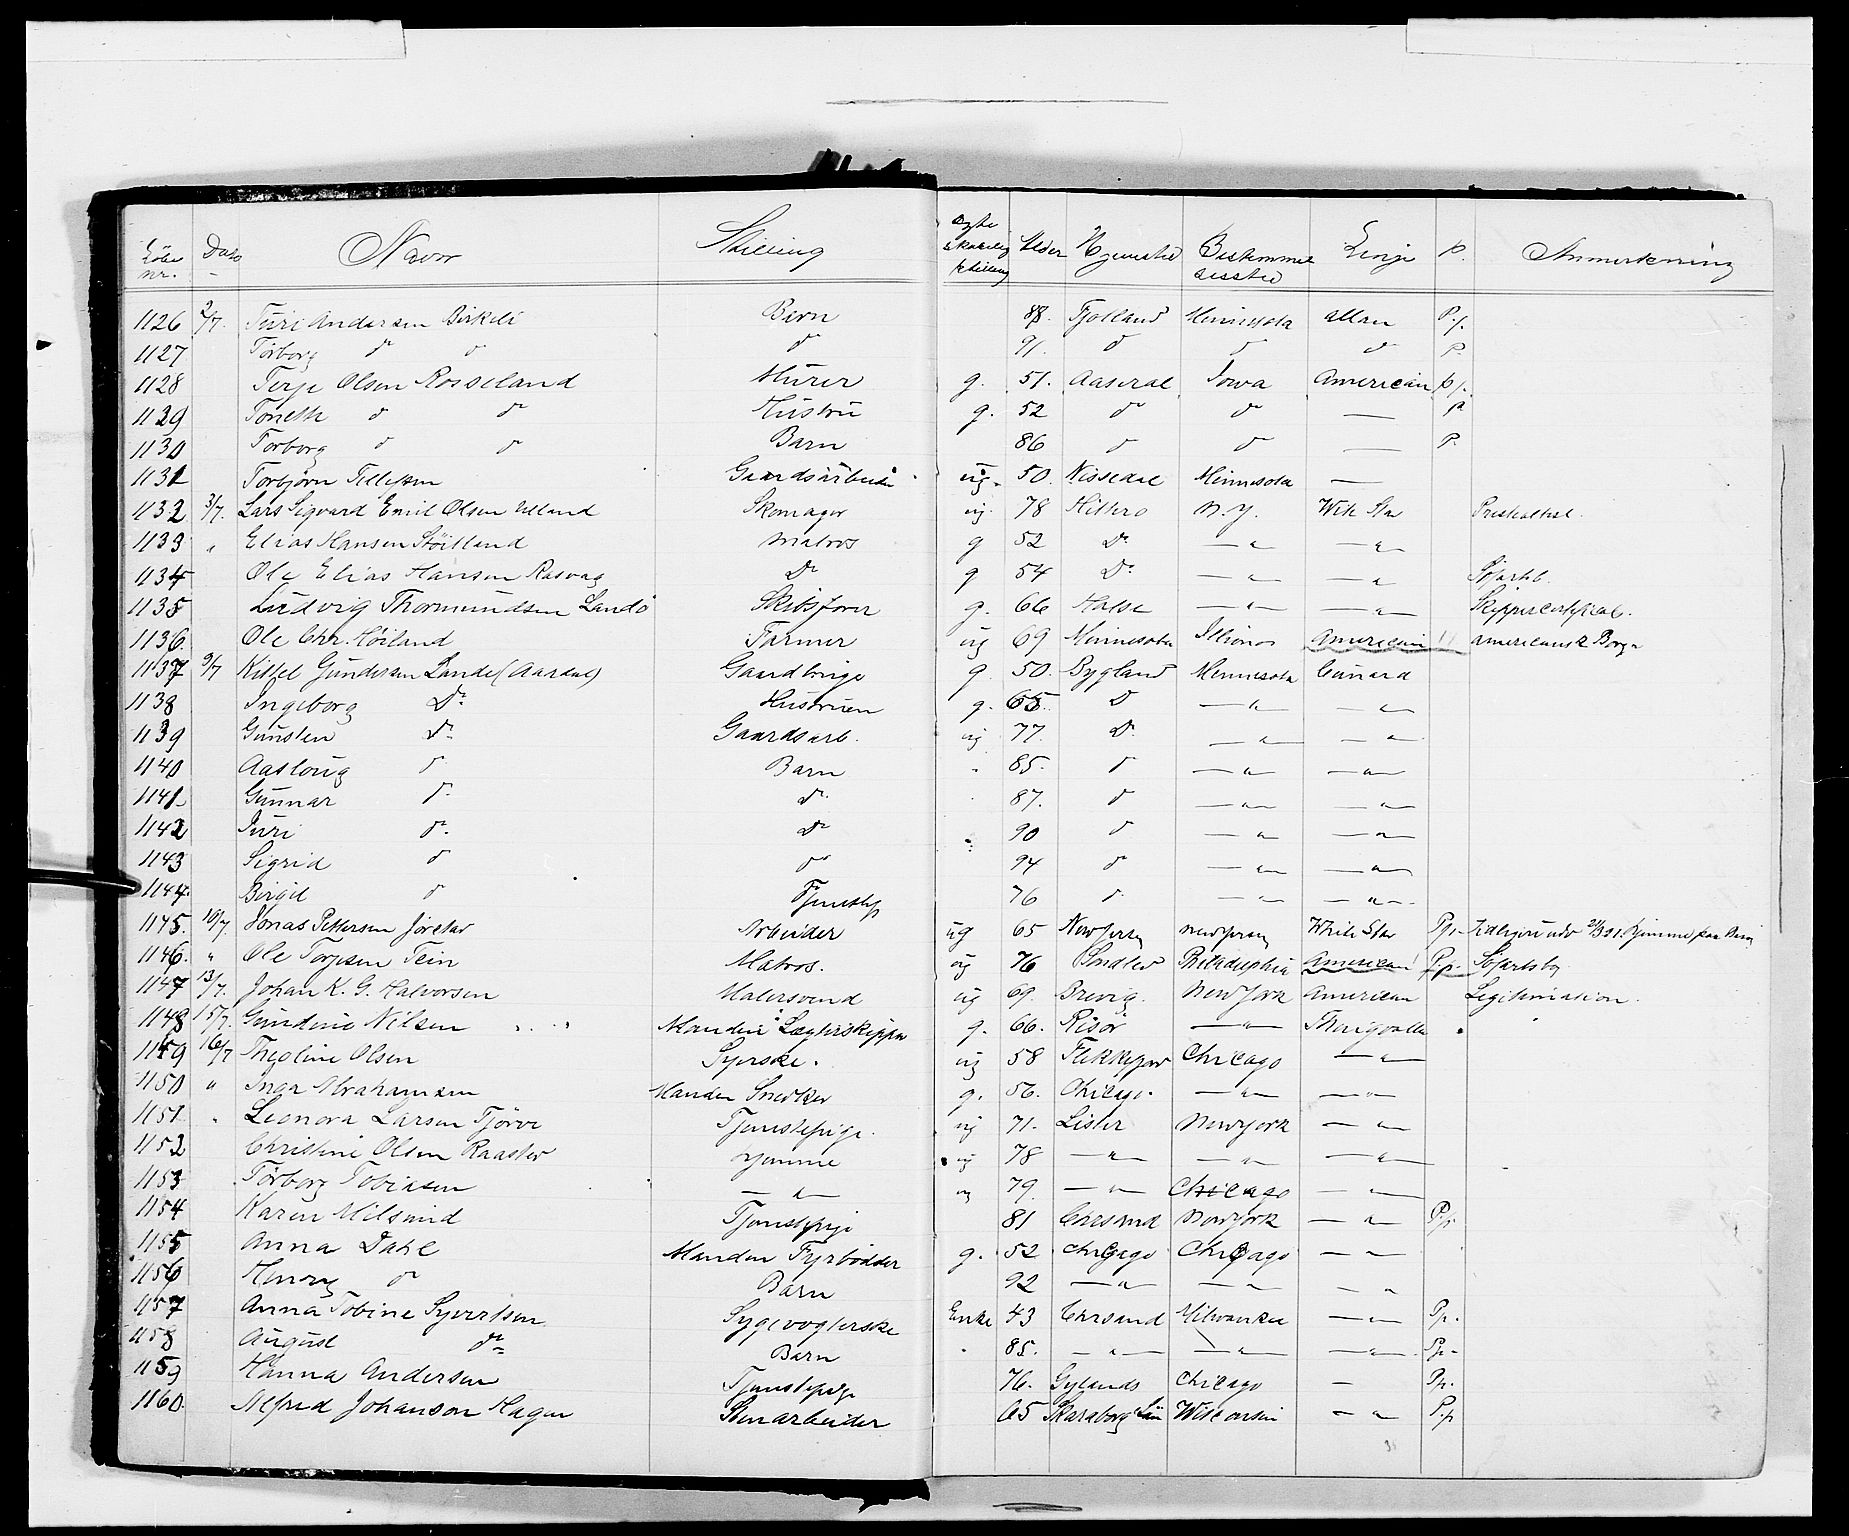 Løbe nr. Dato Navn Stilling Ægteskabelig stilling Alder Hjemsted Bestemmelsessted Linje P. Anmerkning
1126 2/7. Turi Andersen Birkeli Barn 88. Fjotland Minnesota allan P.p.
1127 Torborg do do do 91. do do do P.
1128 Terje Olsen Rosseland Murer g. 51. Aaseral Iowa American P.p.
1129 Toneth do do Hustru g. 52 do do — P
1130 Torborg do do Barn 86 do do — P.
1131 Torbjørn Tellefsen Gaardsarbeide ug. 50. Nissedal Minnesota —
1132 3/7. Lars Sigvard Emil Olsen Ulland Skomager ug. 78 Hittero N.Y. Wite Star
1133 " Elias Hansen Stöitland Matros g 52 Do — " — — " —
1134 Ole Elias Hansen Rasvag Do g 54 Do — " — — " Søfartsb.
1135 Ludvig Thormundsen Landö Skibsfører g. 66 Halse — " — — " — Skippercertifical.
1136 Ole Chr. Höiland Farmer ug 69 Minnesota Illionos American americansk Borger
1137 9/7 Kittel Gundersen Lande (Aardal) Gaardbruge g. 50. Bygland Mennesota Cunard
1138 Ingeborg Do Hustruen g. 65. D — " — — " —
1139 Gunsten Do Gaardsarb. ug 77. Do — " — — " —
1140 Aasloug do Barn " 85. do — " — — " —
1141 Gunnar do do 87. do — " — — " —
1142 Turi do. do " 90 do — " — — " —
1143 Sigrid do do 94 do — " — — " —
1144. Birgit do Tjenestep 76 do — " — — " —
1145. 10/7. Jonas Pettersen Jørstad Arbeider ug 65 New Jersey new jersey White Star P.p.
1146. " Ole Torjesen Tein Matros. ug 76 Philadelphia American P.p. Søfartsby
1147 13/7. Johan K. G. Halvorsen Malersvend ug 69. Brevig. New York American Legitimation.
1148 15/7. Gundine Nilsen Manden Lægterskipper g. 66. Risör — " — Thingvalla
1149 16/7 Thegline Olsen Syerske. ug 58 Flekkefjord Chicago — " —
1150 " Inga Abrahamsen Manden Snedker g. 56. Chicago. — " — — " —
1151. " Leonora Larsen Tjörve Tjenestepige. ug 71. Lister Newyork — " —
1152 Christine Olsen Raastad Hjemme ug 78 — " — — " — — " —
1153 Torborg Tobiasen — " — ug 79. — " — Chicago — " —
1154 Karen Milsund Tjenestepige 81 Chrsand Newyork — " — P.p.
1155 Anna Dahl Manden Fyrbödder g. 52 Chicago Chicago — " —
1156 Henry do Barn 92 — " — — " — — "
1157 Anna Tobine Syvertsen Sygevogterske Enke 43 Chrsand Milwaukee — " — P.p.
1158 August do Barn " 85. — " — — " — — " — P.p.
1159 Hanna Andersen Tjenestepige 76. Gylands Chicago — P.p.
1160. Alfred Johanson Hagen Stenarbeider 65 Skaraborg Län Wisconsin — " P.p